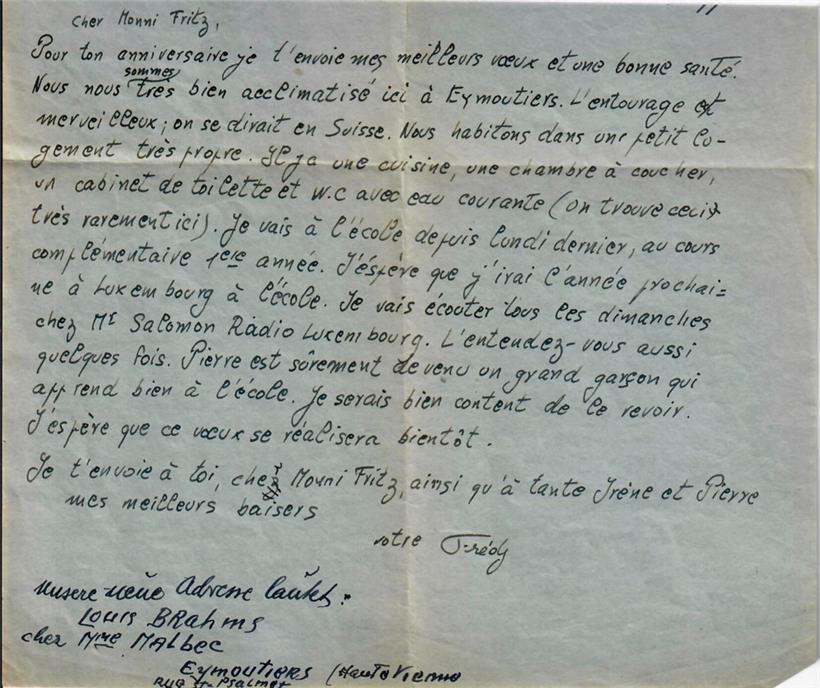 Cher Monni Fritz,
Pour ton anniversaire je t'envoie mes meilleurs vœux et une bonne santé.
sommes
Nous nous très bien acclimatisé ici à Eymoutiers. L'entourage est
merveilleux; on se dirait en Suisse. Nous habitons dans un petit lo-
gement très propre. Il ya une cuisine, une chambre à coucher,
un cabinet de toilette et w.c avec eau courante (on trouve ceci
très rarement ici). Je vais à l'école depuis lundi dernier, au cours
complémentaire 1ere année. J'éspère que j'irai l'année prochai=
ne à Luxembourg à l'école. Je vais écouter tous les dimanches
chez Mr Salomon Radio Luxembourg. L'entendez-vous aussi
quelques fois. Pierre est sûrement devenu un grand garçon qui
apprend bien à l'école. Je serais bien content de le revoir.
J'éspère que ce vœux se réalisera bientôt.
Je t'envoie à toi, cher Monni Fritz, ainsi qu'à tante Irène et Pierre
mes meilleurs baisers
votre Frédy
Unsere neue Adresse lautet:
Louis Brahms
chez Mme Malbec
Eymoutiers (Haute Vienne
Rue St-Psalmet